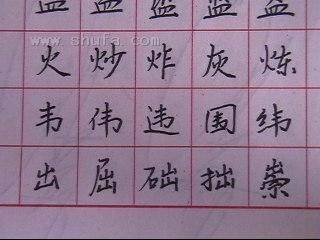 www.shufa.com
火炒炸灰炼
韦伟违围纬
出屈础拙崇